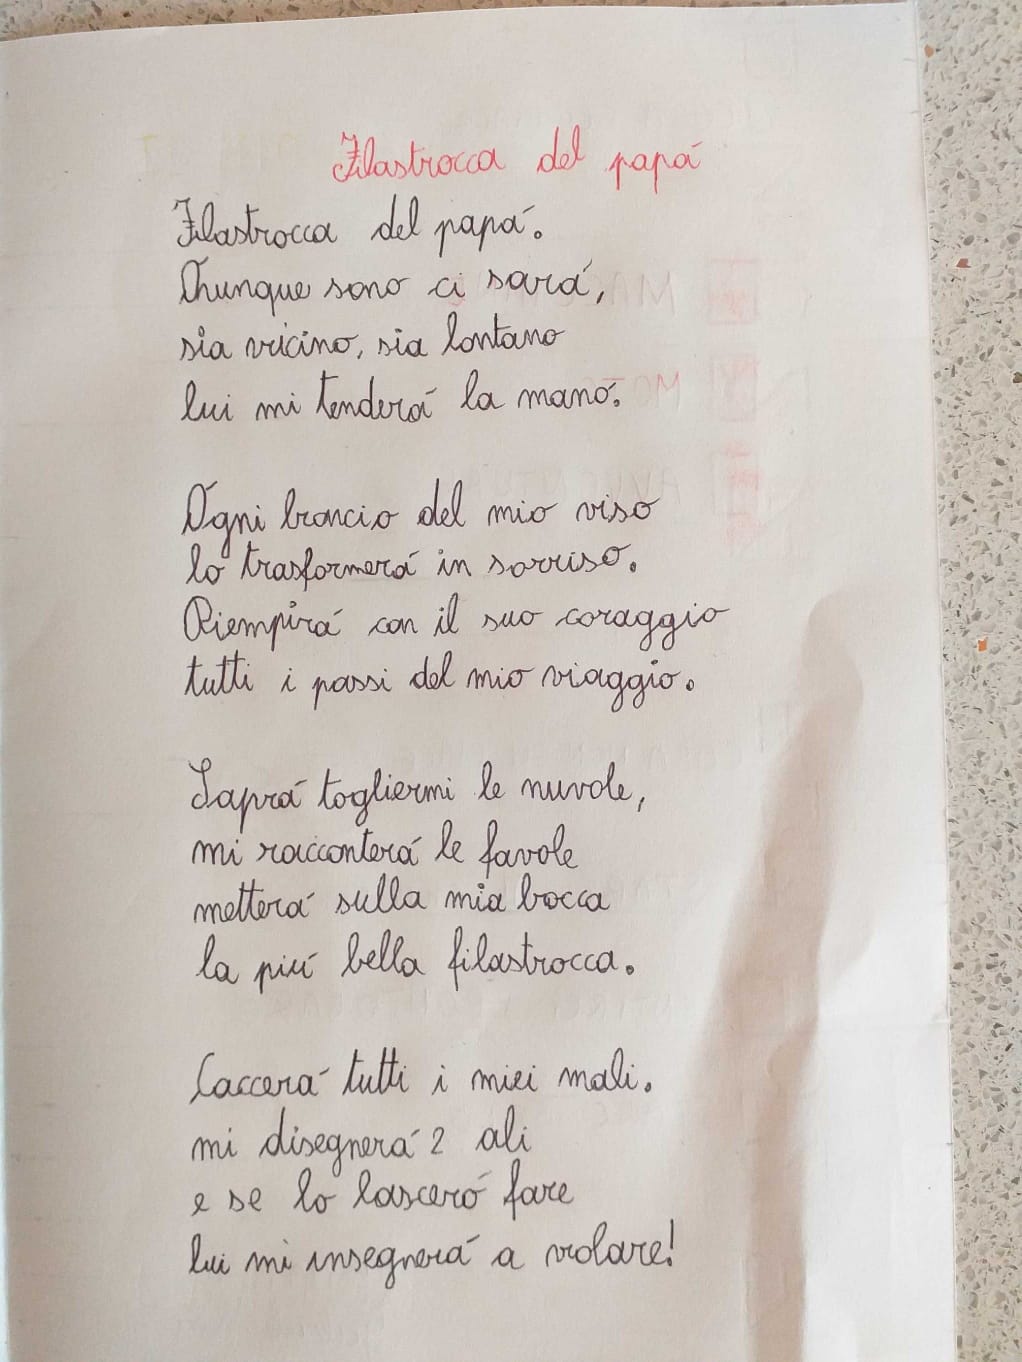 Filastrocca del papá
Filastrocca del papá.
Ovunque sono ci sará,
sia vicino, sia lontano
lui mi tenderá la mano.
Ogni broncio del mio viso
lo trasformerá in sorriso.
Riempirá con il suo coraggio
tutti i passi del mio viaggio.
Saprá togliermi le nuvole,
mi racconterá le favole
metterá sulla mia bocca
la piú bella filastrocca.
Caccerá tutti i miei mali.
mi disegnerá 2 ali
e se lo lasceró fare
lui mi insegnerá a volare!